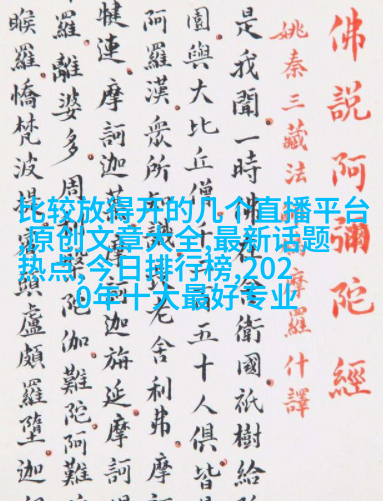 佛說阿彌陀經
姚秦三藏法摩羅什譯
是我聞一時佛在舍衛國祇樹給
園與大比丘僧千二百五十人俱皆
阿羅漢眾所知識長老舍利弗摩訶
犍連摩訶迦葉摩訶迦旃延摩訶
羅離婆多周利槃陀伽難陀阿難
睺羅憍梵波提賓頭盧頗羅墮迦
比较放得开的几个直播平台
,原创文章大全,最新话题
热点,今日排行榜,202
0年十大最好专业